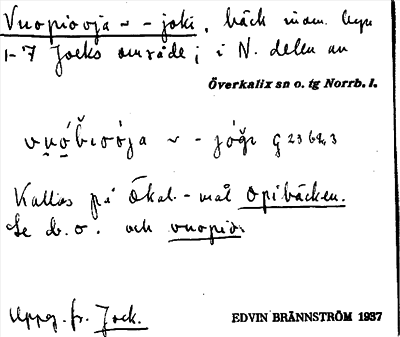 Vuopiooja ~ - joki, bäck inom byn
1-7 Jocks område; i N. delen av
Överkalix sn o. tg Norrb. l.
~ -
Kallas på Ökal.-mål Opibäcken.
Se d. o. och vuopio.
Uppg. fr. Jock.
EDVIN BRÄNNSTRÖM 1937